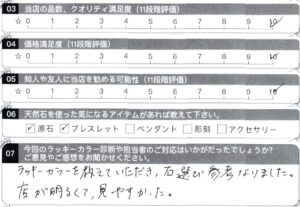 03 当店の品数、クオリティ満足度（11段階評価）
☆ 0 1 2 3 4 5 6 7 8 9 10
04 価格満足度（11段階評価）
☆ 0 1 2 3 4 5 6 7 8 9 10
05 知人や友人に当店を勧める可能性（11段階評価）
☆ 0 1 2 3 4 5 6 7 8 9 10
06 天然石を使った気になるアイテムがあれば教えて下さい。
☑原石 ☑ブレスレット □ペンダント □彫刻 □アクセサリー
07 今回のラッキーカラー診断や担当者のご対応はいかがだったでしょうか？
ご意見やご感想をお聞かせください。
ラッキーカラーを教えていただき、石選び参考なりました。
店が明るくて、見やすかった。